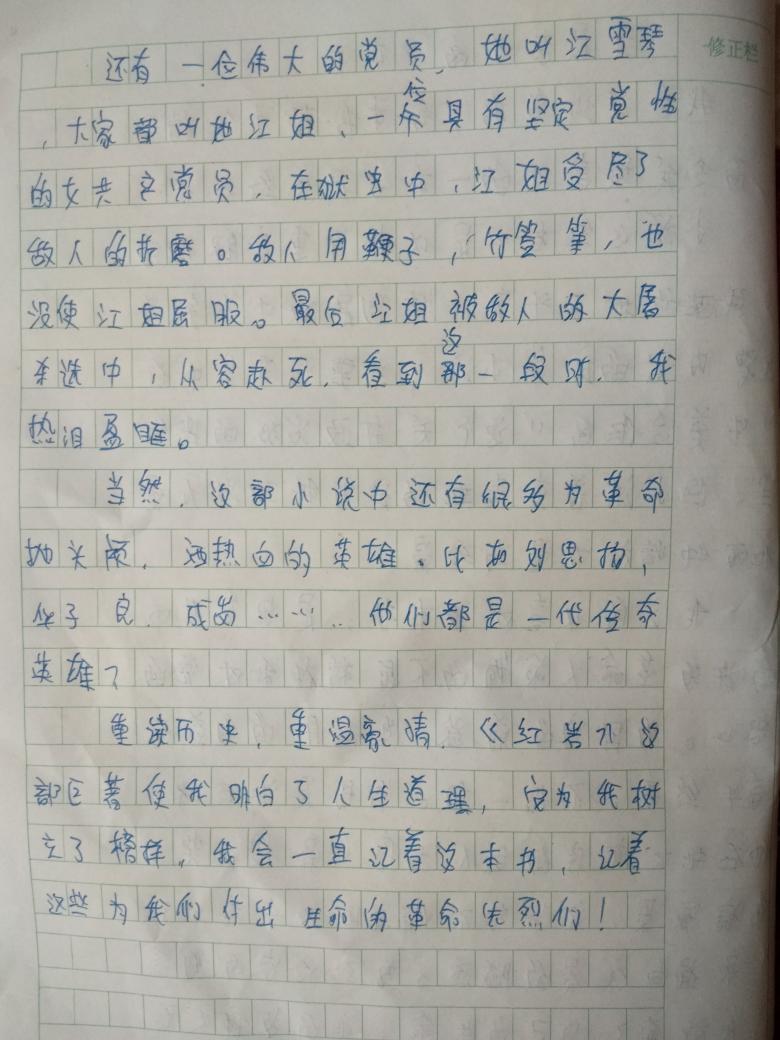 修正栏
还有一位伟大的党员,她叫江雪琴
,大家都叫她江姐、一位具有坚定党性
的女共产党员,在狱中,江姐受尽了
敌人的折磨。敌人用鞭子,竹签等,也
没使江姐屈服。最后江姐被敌人的大屠
杀选中,从容赴死,看到这一段时,我
热泪盈眶。
当然,这部小说中还有很多为革命
抛头颅,洒热血的英雄。比如刘思扬,
华子良,成岗……他们都是一代传奇
英雄?
重读历史,重温豪情,《红岩》这
部巨著使我明白了人生道理,它为我树
立了榜样,我会一直记着这本书,记着
这些为我们付出生命的革命先烈们!